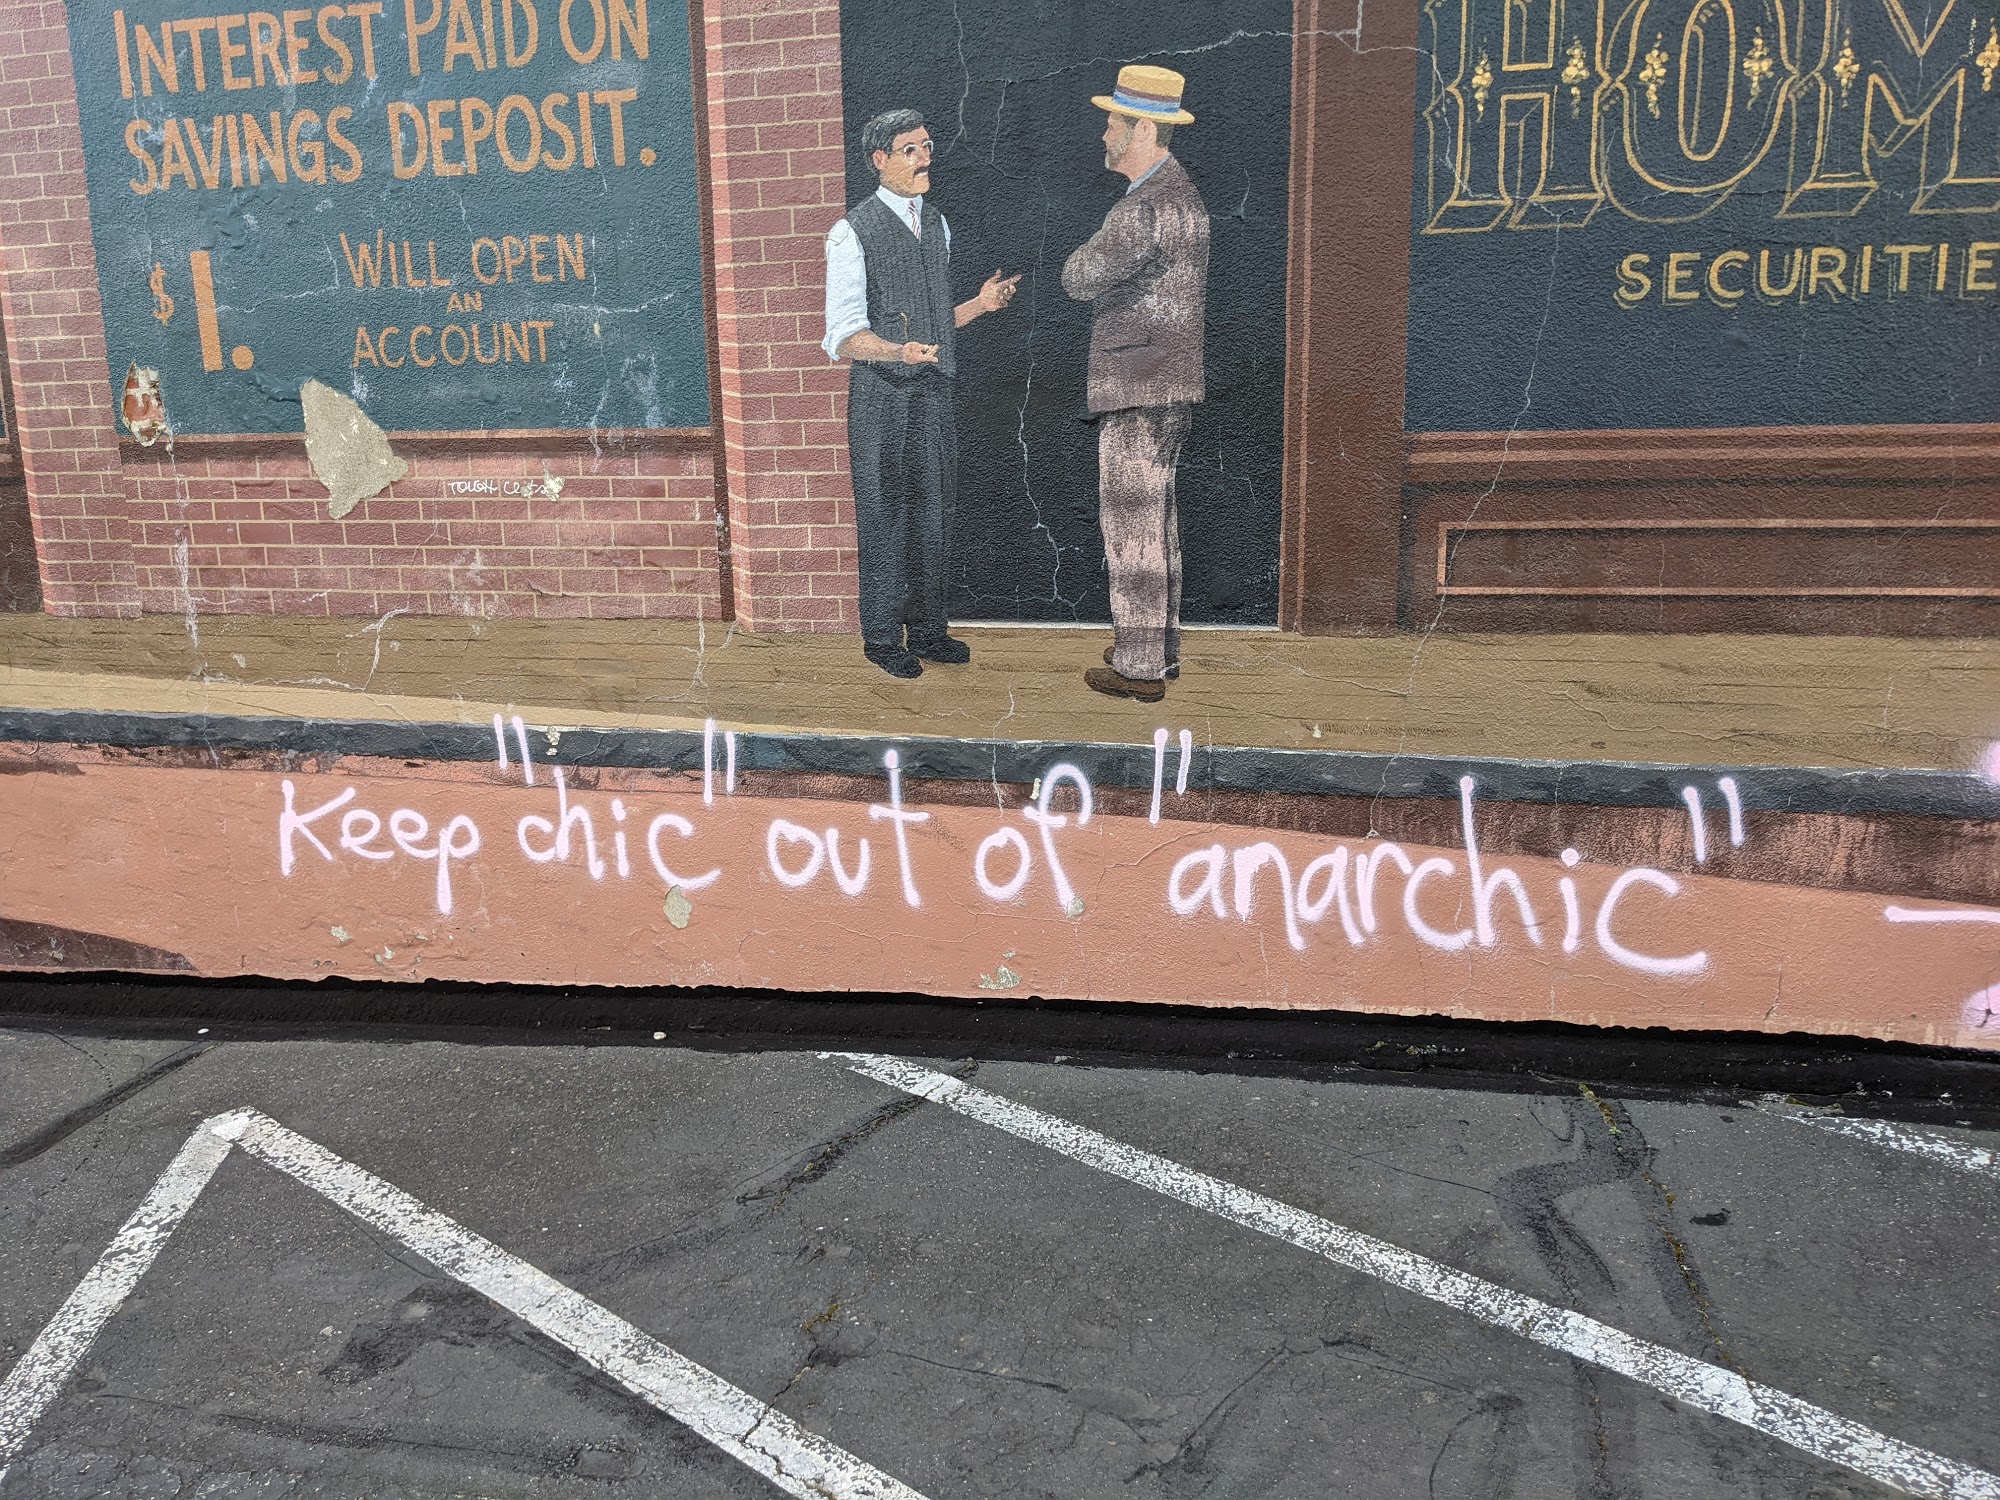 INTEREST PAID ON
SAVINGS DEPOSIT.
$1.
WILL OPEN
AN
ACCOUNT
HOM
SECURITIE
TOUGH
Keep "chic" out of "anarchic"